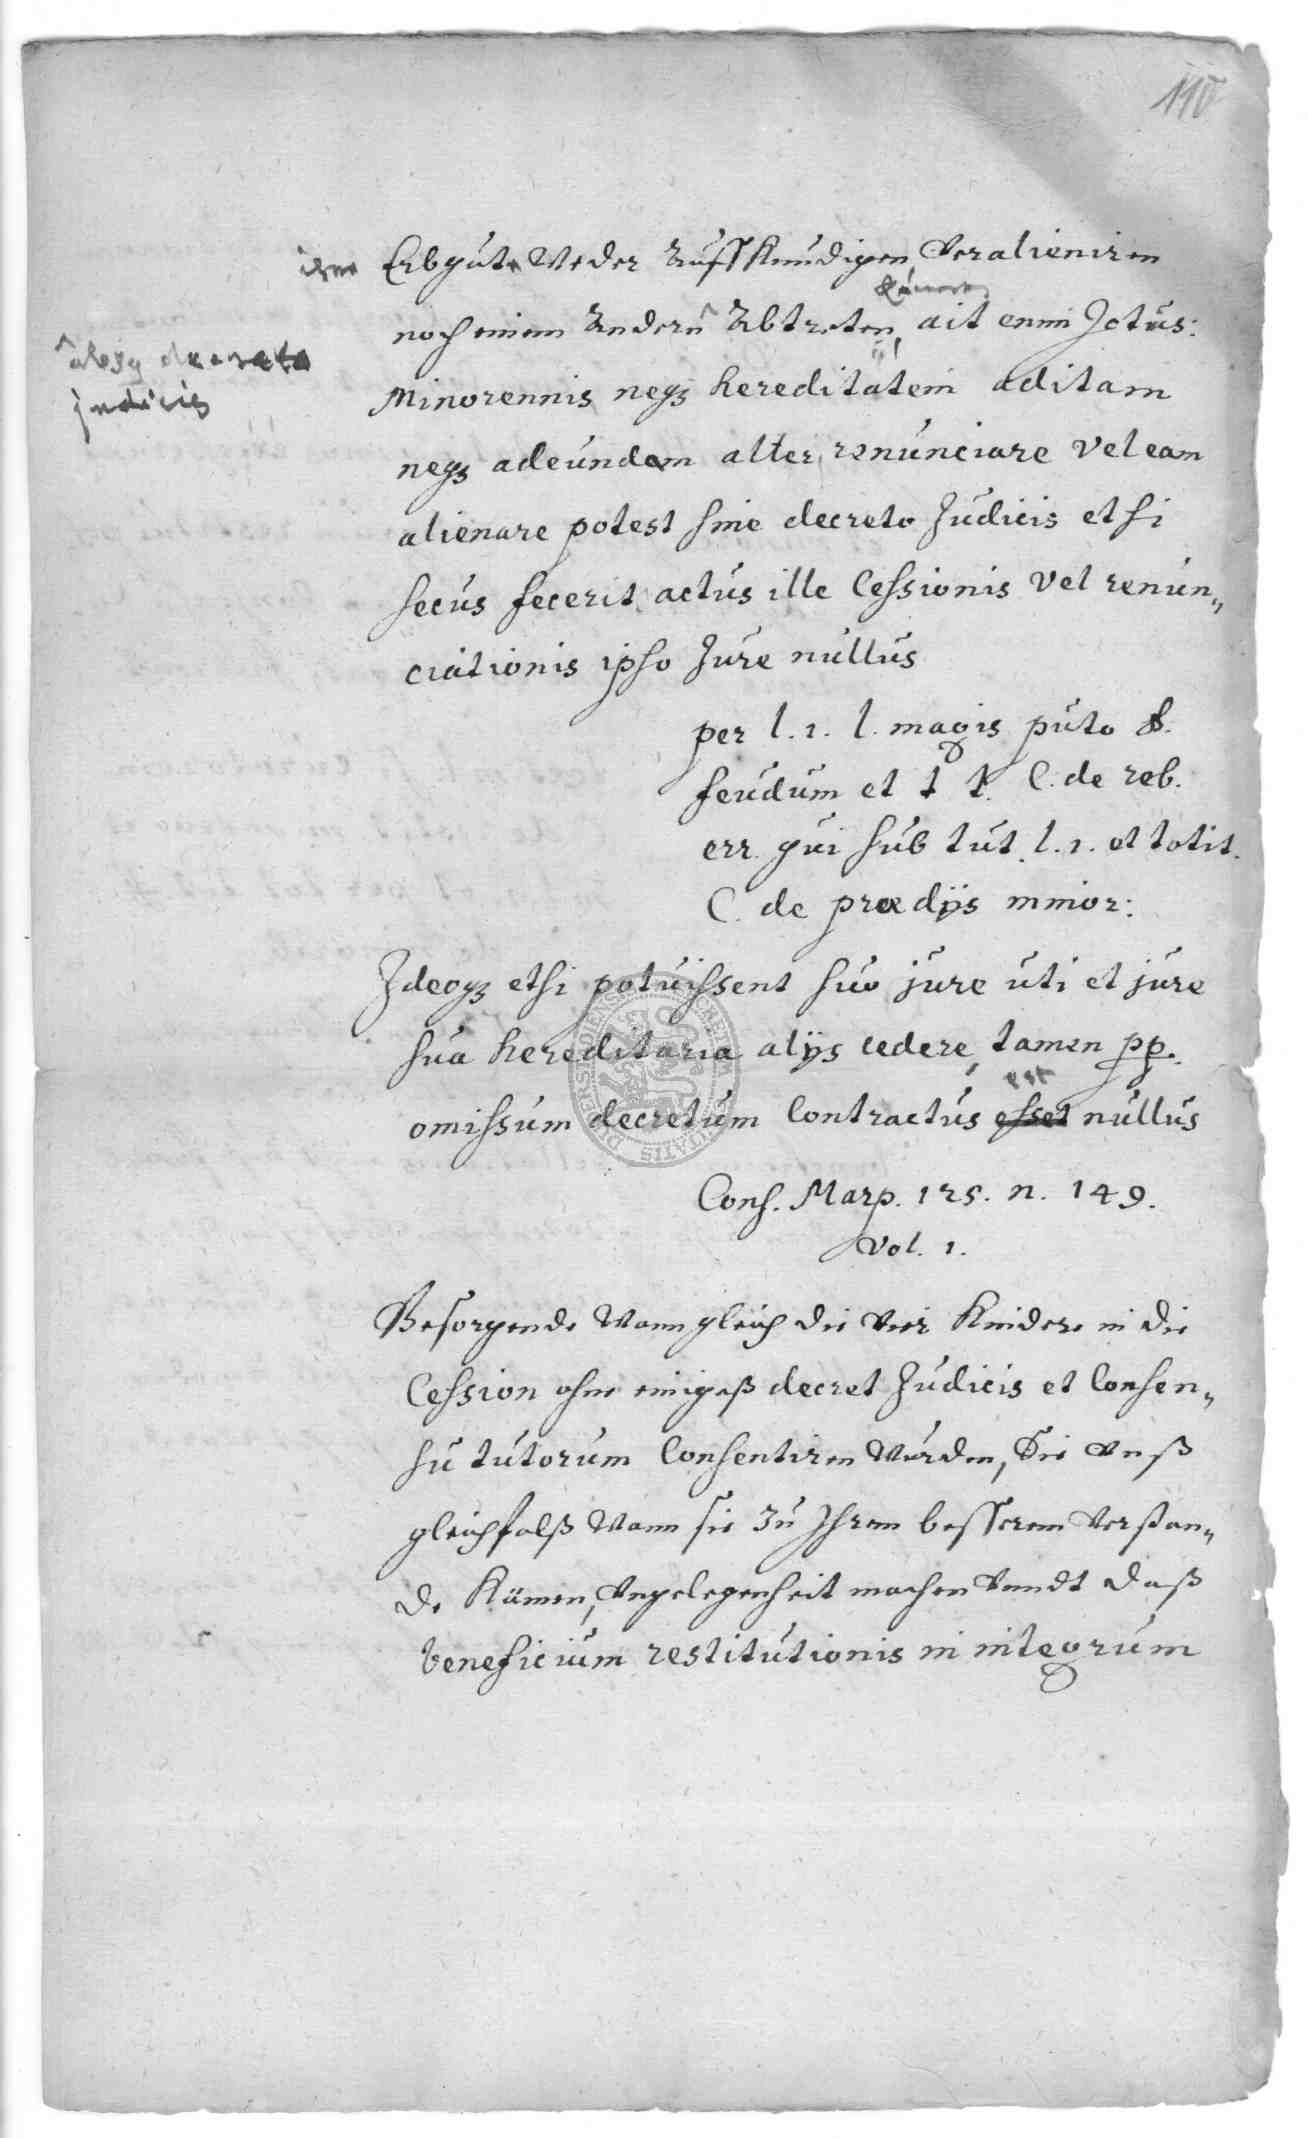 110
ihre Erbgute Weder Auffkündigen Veralieniren
können
noch einem Andern Abtreten, ait enim Jctus:
absq decreto
judicis
Minorennis neqȝ hereditatem aditam
neqȝ adeundem alteri renunciare Vel eam
alienare potest sine decreto Judicis et si
secus fecerit actus ille Cessionis Vel renun„
ciationis ipso Jure nullus
per l. 1. l. magis puto §.
feudum et t t. C. de reb.
err. qui sub tut. l. 1. et totit.
C. de prædijs minor:
Ideoqȝ etsi potuissent suo jure uti et jure
sua hereditaria alijs cedere, tamen pp.
est
omissum decretum Contractus esset nullus
Cons. Marp. 125. n. 149.
Vol. 1.
Besorgende Wann gleich die Vier Kindere in die
Cession ohne einigeß decret Judicis et Consen„
su tutorum Consentiren Würden, Sie Vnß
gleichfalß Wann sie Zu Ihrem besserem Verstan„
de Kämen, Vngelegenheit machen Vundt daß
beneficium restitutionis in integrum